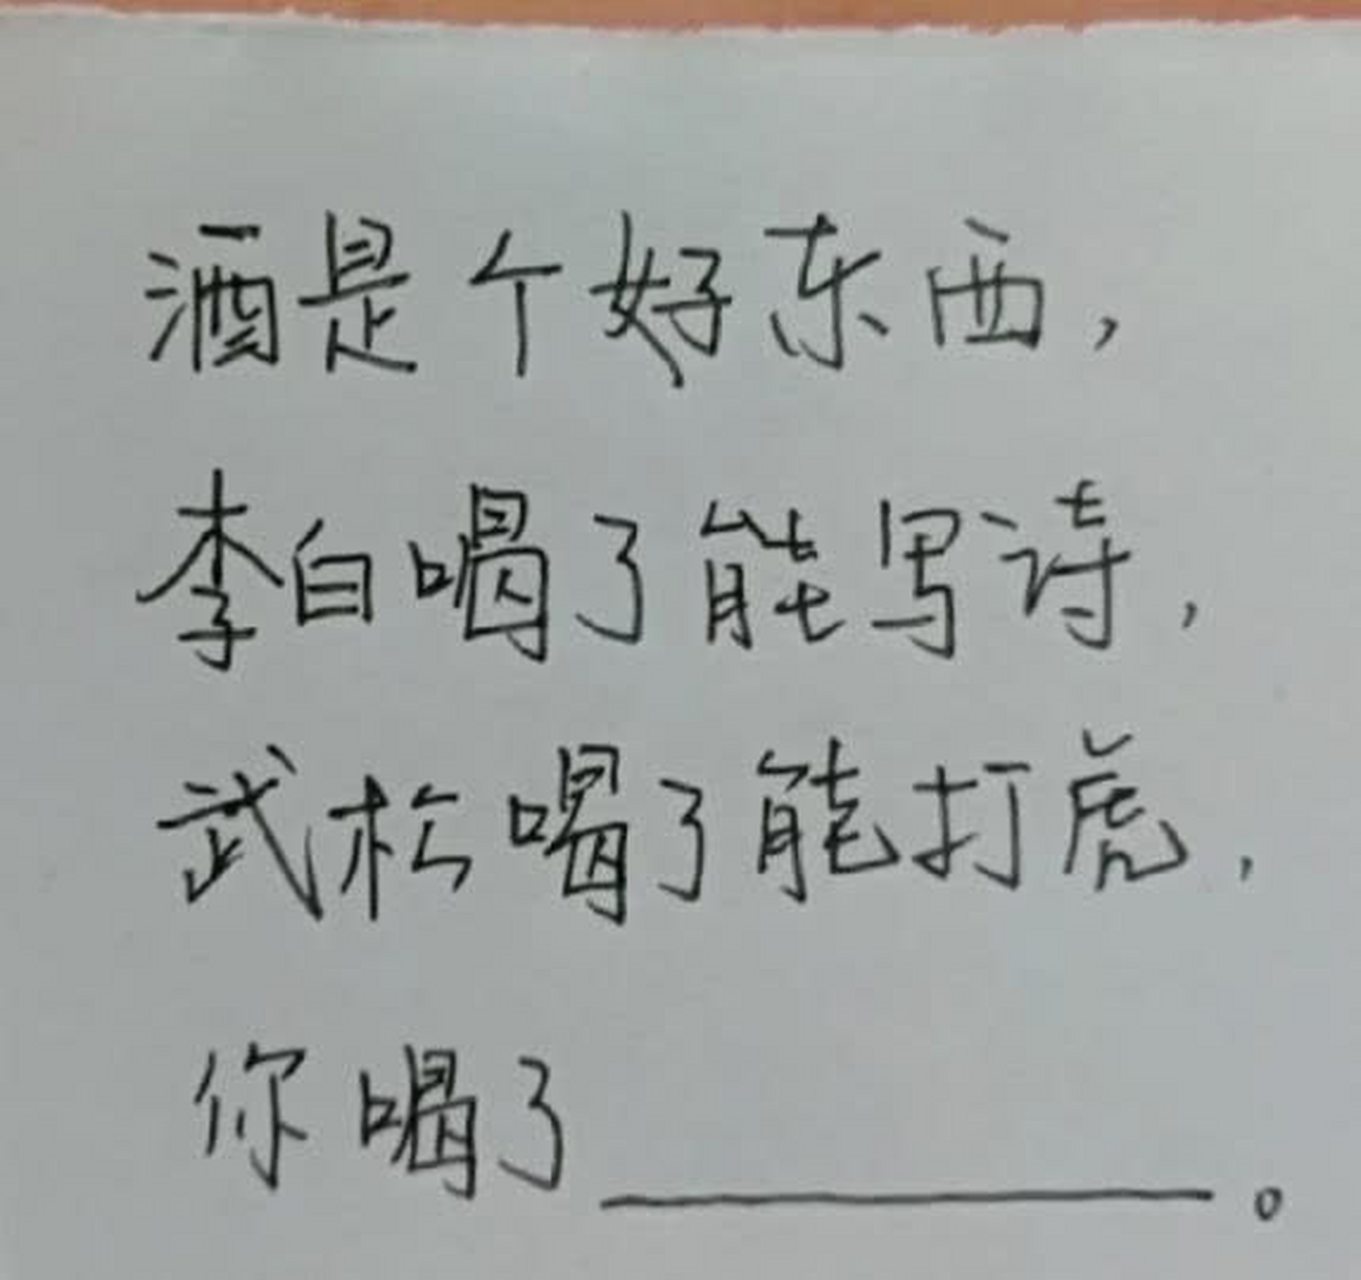 酒是个好东西，
李白喝了能写诗，
武松喝了能打虎，
你喝了________。